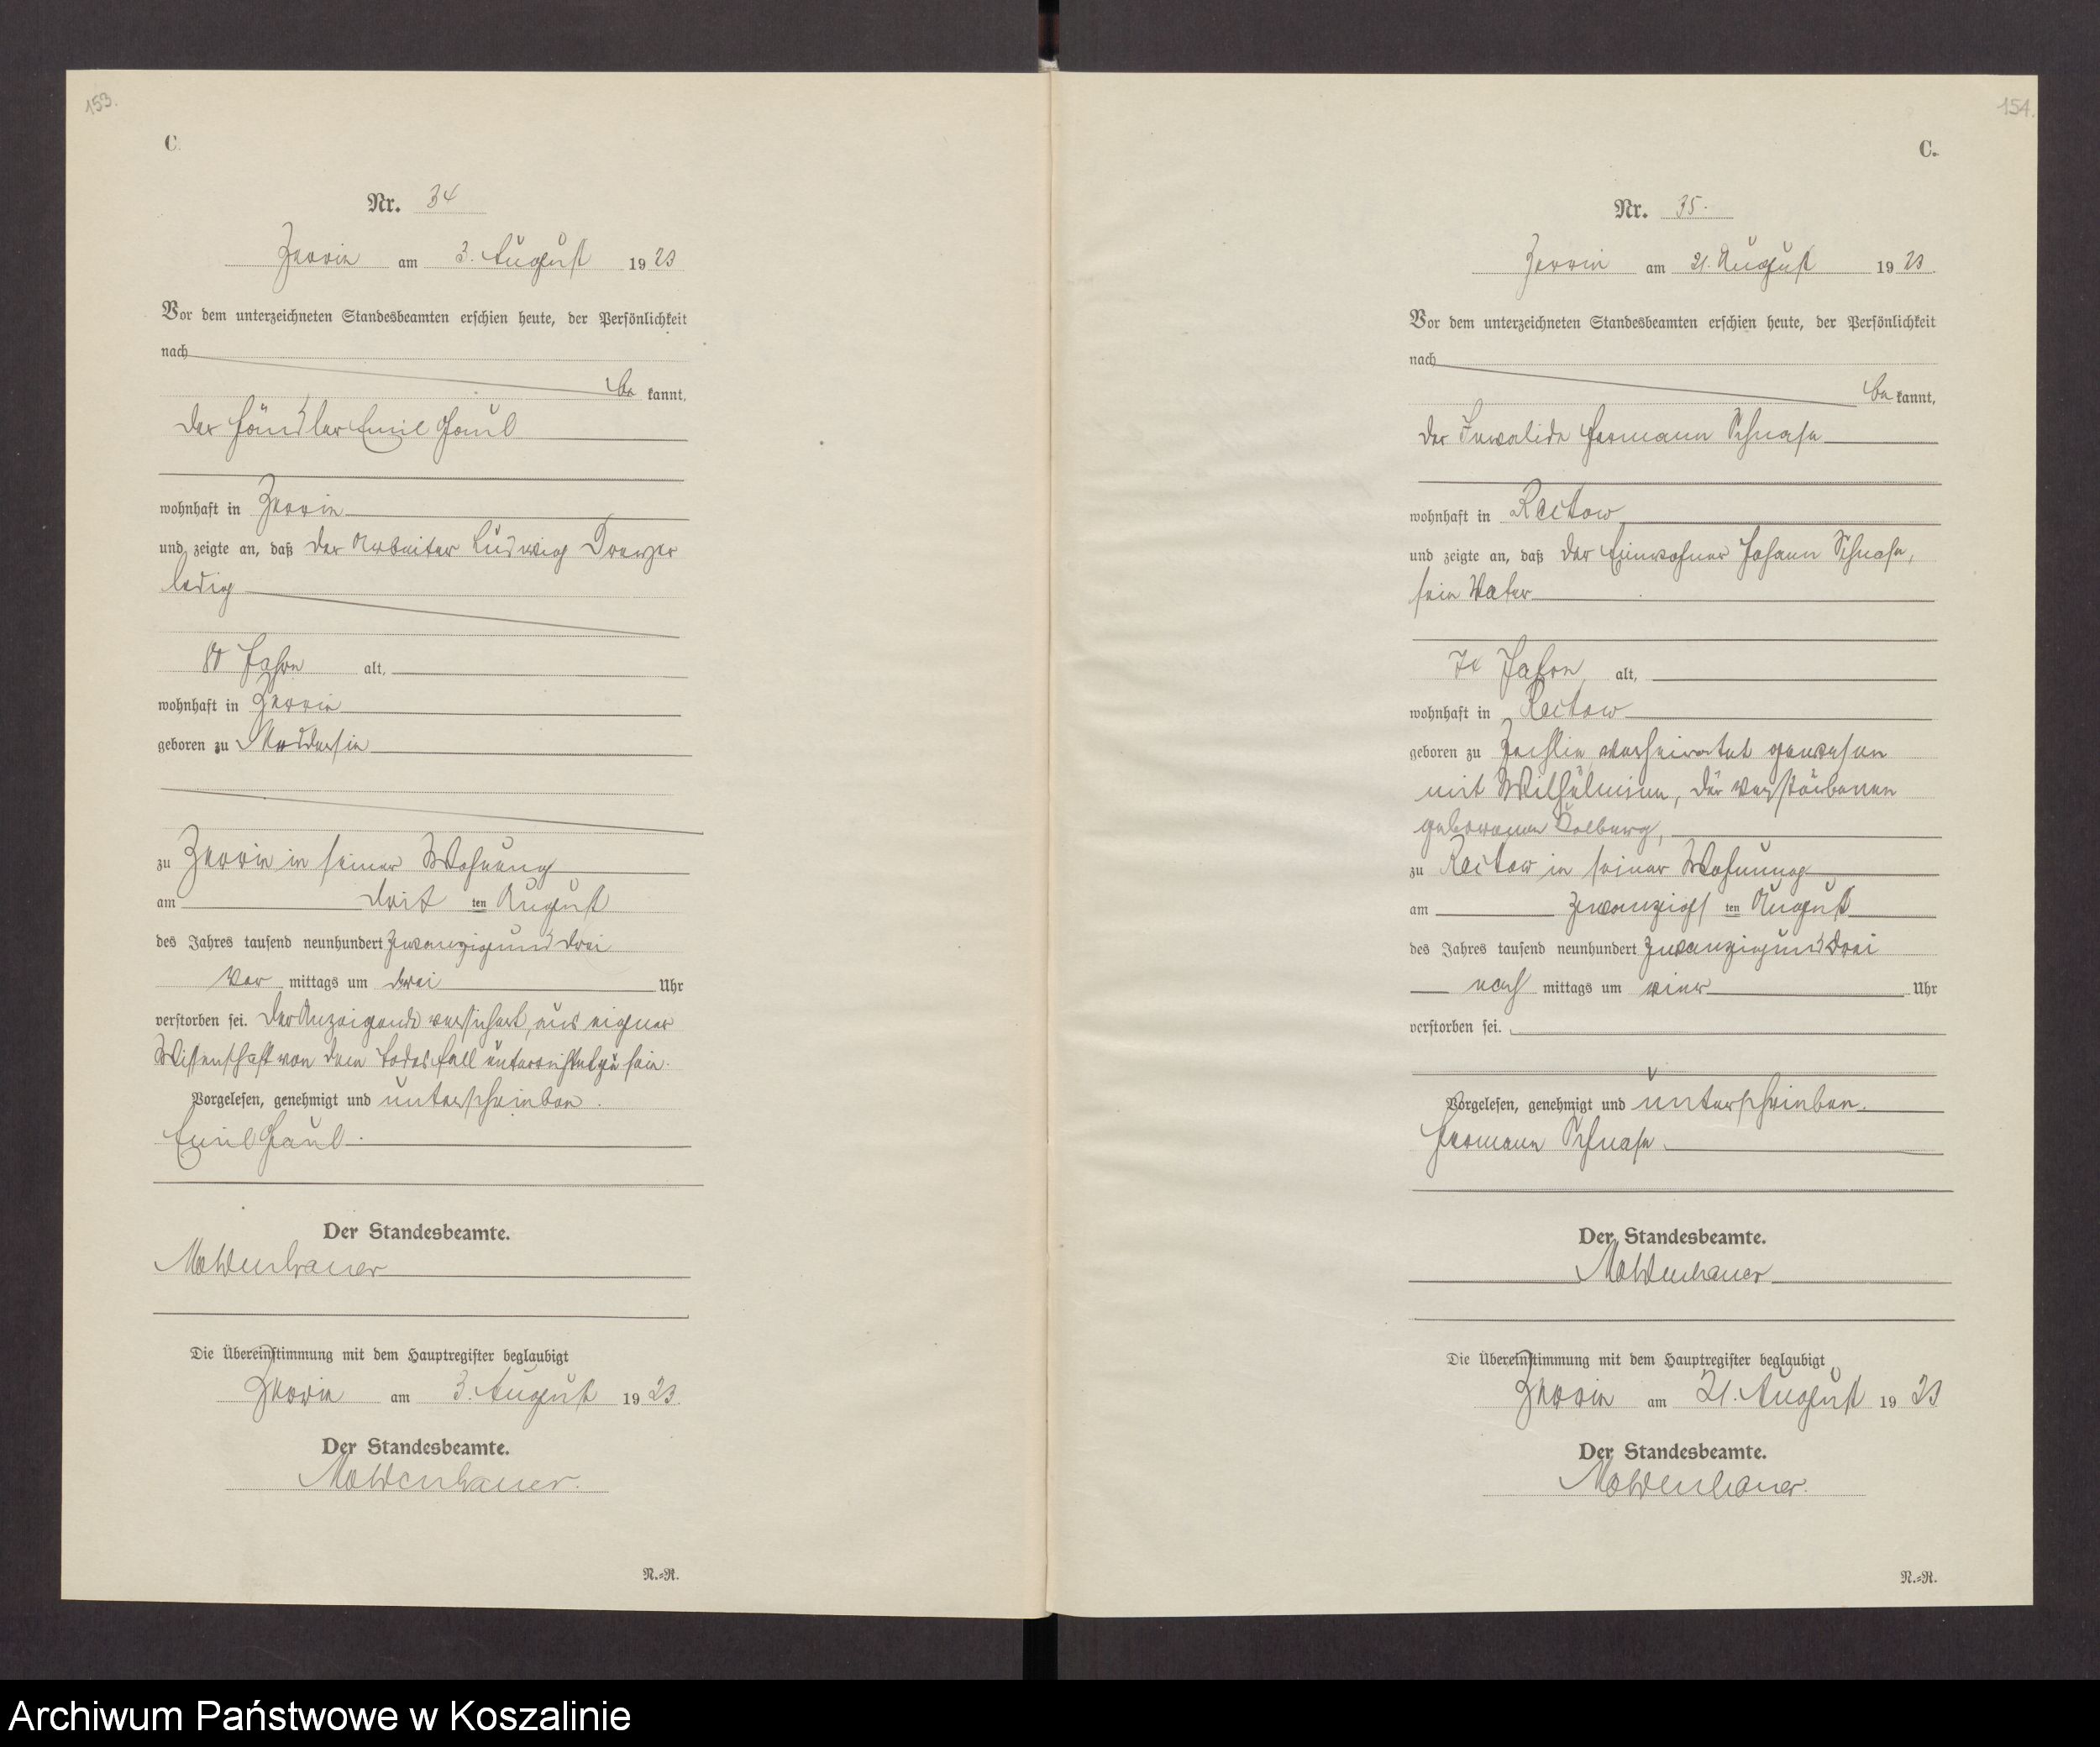 153.
C.
Nr. 34
Zerrin am 3. August 1923
Vor dem unterzeichneten Standesbeamten erschien heute, der Persönlichkeit
nach
be kannt,
der Händler Emil Gaul
wohnhaft in Zerrin
und zeigte an, daß der Arbeiter Ludwig
ledig
Jahre alt,
wohnhaft in Zerrin
geboren zu Moddersin
zu Zerrin in seiner Wohnung
am drit ten August
des Jahres tausend neunhundert zwanzigunddrei
Vor mittags um Uhr
verstorben sei. Der Anzeigende versichert, aus eigener
Wissenschaft von dem Todesfall unterrichtet zu sein.
Vorgelesen, genehmigt und unterschrieben.
Emil Gaul.
Der Standesbeamte.
Moldenhauer
Die Übereinstimmung mit dem Hauptregister beglaubigt
Zerrin am 3. August 1923.
Der Standesbeamte.
Moldenhauer.
N.=R.
154.
C.
Nr. 35.
Zerrin am 21. August 1923.
Vor dem unterzeichneten Standesbeamten erschien heute, der Persönlichkeit
nach
be kannt,
der Invalide Hermann Schnase
wohnhaft in Reckow
und zeigte an, daß der Einwohner Johann Schnase,
sein Vater
Jahre alt,
wohnhaft in Reckow
geboren zu verheiratet gewesen
mit Wilhelmine, der verstorbenen
geborenen Kolberg,
zu Reckow in seiner Wohnung
am zwanzigs ten August
des Jahres tausend neunhundert zwanzigunddrei
nach mittags um vier Uhr
verstorben sei.
Vorgelesen, genehmigt und unterschrieben.
Hermann Schnase.
Der Standesbeamte.
Moldenhauer
Die Übereinstimmung mit dem Hauptregister beglaubigt
Zerrin am 21. August 1923
Der Standesbeamte.
Moldenhauer.
N.=R.
Archiwum Państwowe w Koszalinie